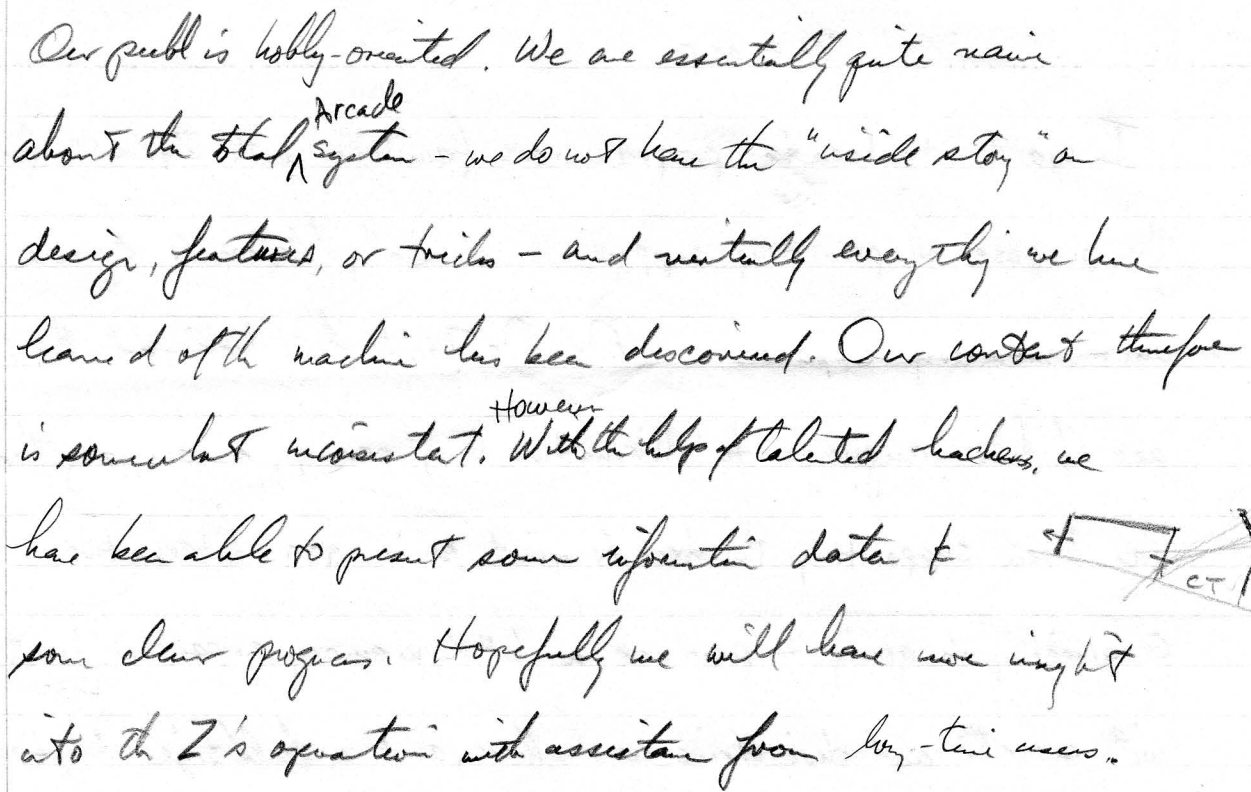 Our publ is hobby-oriented. We are essentially quite naive
about the total Arcade system - we do not have the "inside story" on
design, features, or tricks - and virtually everything we have
learned of the machine has been discovered. Our content therefore
is somewhat inconsistent. However With the help of talented hackers, we
have been able to present some information data &
some clever programs. Hopefully we will have more insight
into the Z's operation with assistance from long-time users..
CT